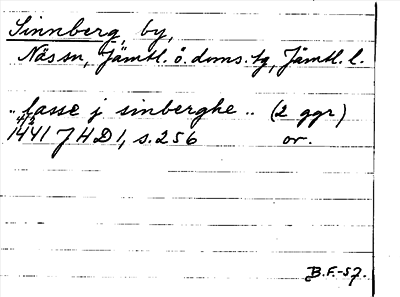 Sinnberg, by,
Näs sn, Jämtl. ö. doms. tg, Jämtl. l.
.. lasse j sinberghe .. (2 ggr)
4/2
1441 JHD 1, s. 256 or.
B.F.-57.